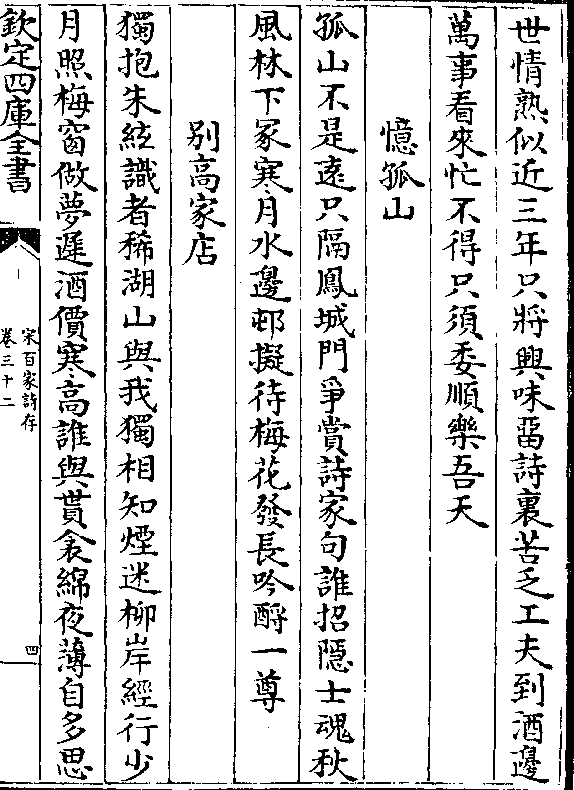 世情熟似近三年只將興味留詩裏苦乏工夫到酒邊
萬事看來忙不得只須委順樂吾天
憶孤山
孤山不是遠只隔鳳城門爭賞詩家句誰招隱士魂秋
風林下冢寒月水邊邨擬待梅花發長吟酹一尊
别高家店
獨抱朱絃識者稀湖山與我獨相知煙迷柳岸經行少
月照梅窗做夢遲酒價寒高誰與貰衾綿夜薄自多思
欽定四庫全書
宋百家詩存
卷三十二
四